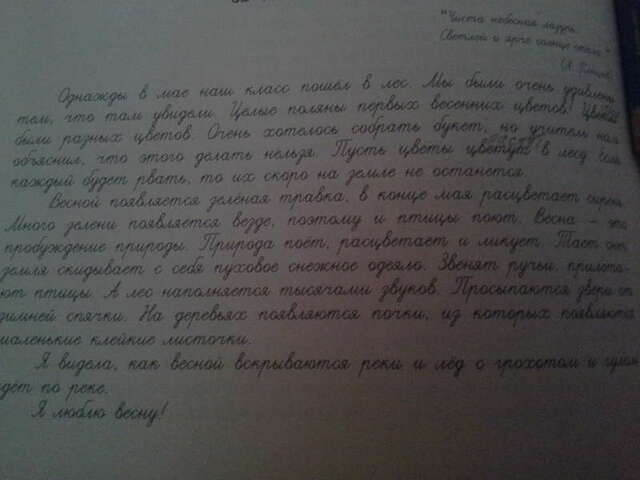 "Чиста небесная лазурь.
Светлей и ярче солнце стало."
(А. Плещеев)
Однажды в мае наш класс пошёл в лес. Мы были очень удивлены
тем, что там увидели. Целые поляны первых весенних цветов! Цветы
были разных цветов. Очень хотелось собрать букет, но учитель нам
объяснил, что этого делать нельзя. Пусть цветы цветут в лесу. Если
каждый будет рвать, то их скоро на земле не останется.
Весной появляется зелёная травка, в конце мая расцветает сирень.
Много зелени появляется везде, поэтому и птицы поют. Весна – это
пробуждение природы. Природа поёт, расцветает и ликует. Тает снег,
земля скидывает с себя пуховое снежное одеяло. Звенят ручьи, прилета-
ют птицы. А лес наполняется тысячами звуков. Просыпаются звери от
зимней спячки. На деревьях появляются почки, из которых появляются
маленькие клейкие листочки.
Я видела, как весной вскрываются реки и лёд с грохотом и гулом
идёт по реке.
Я люблю весну!